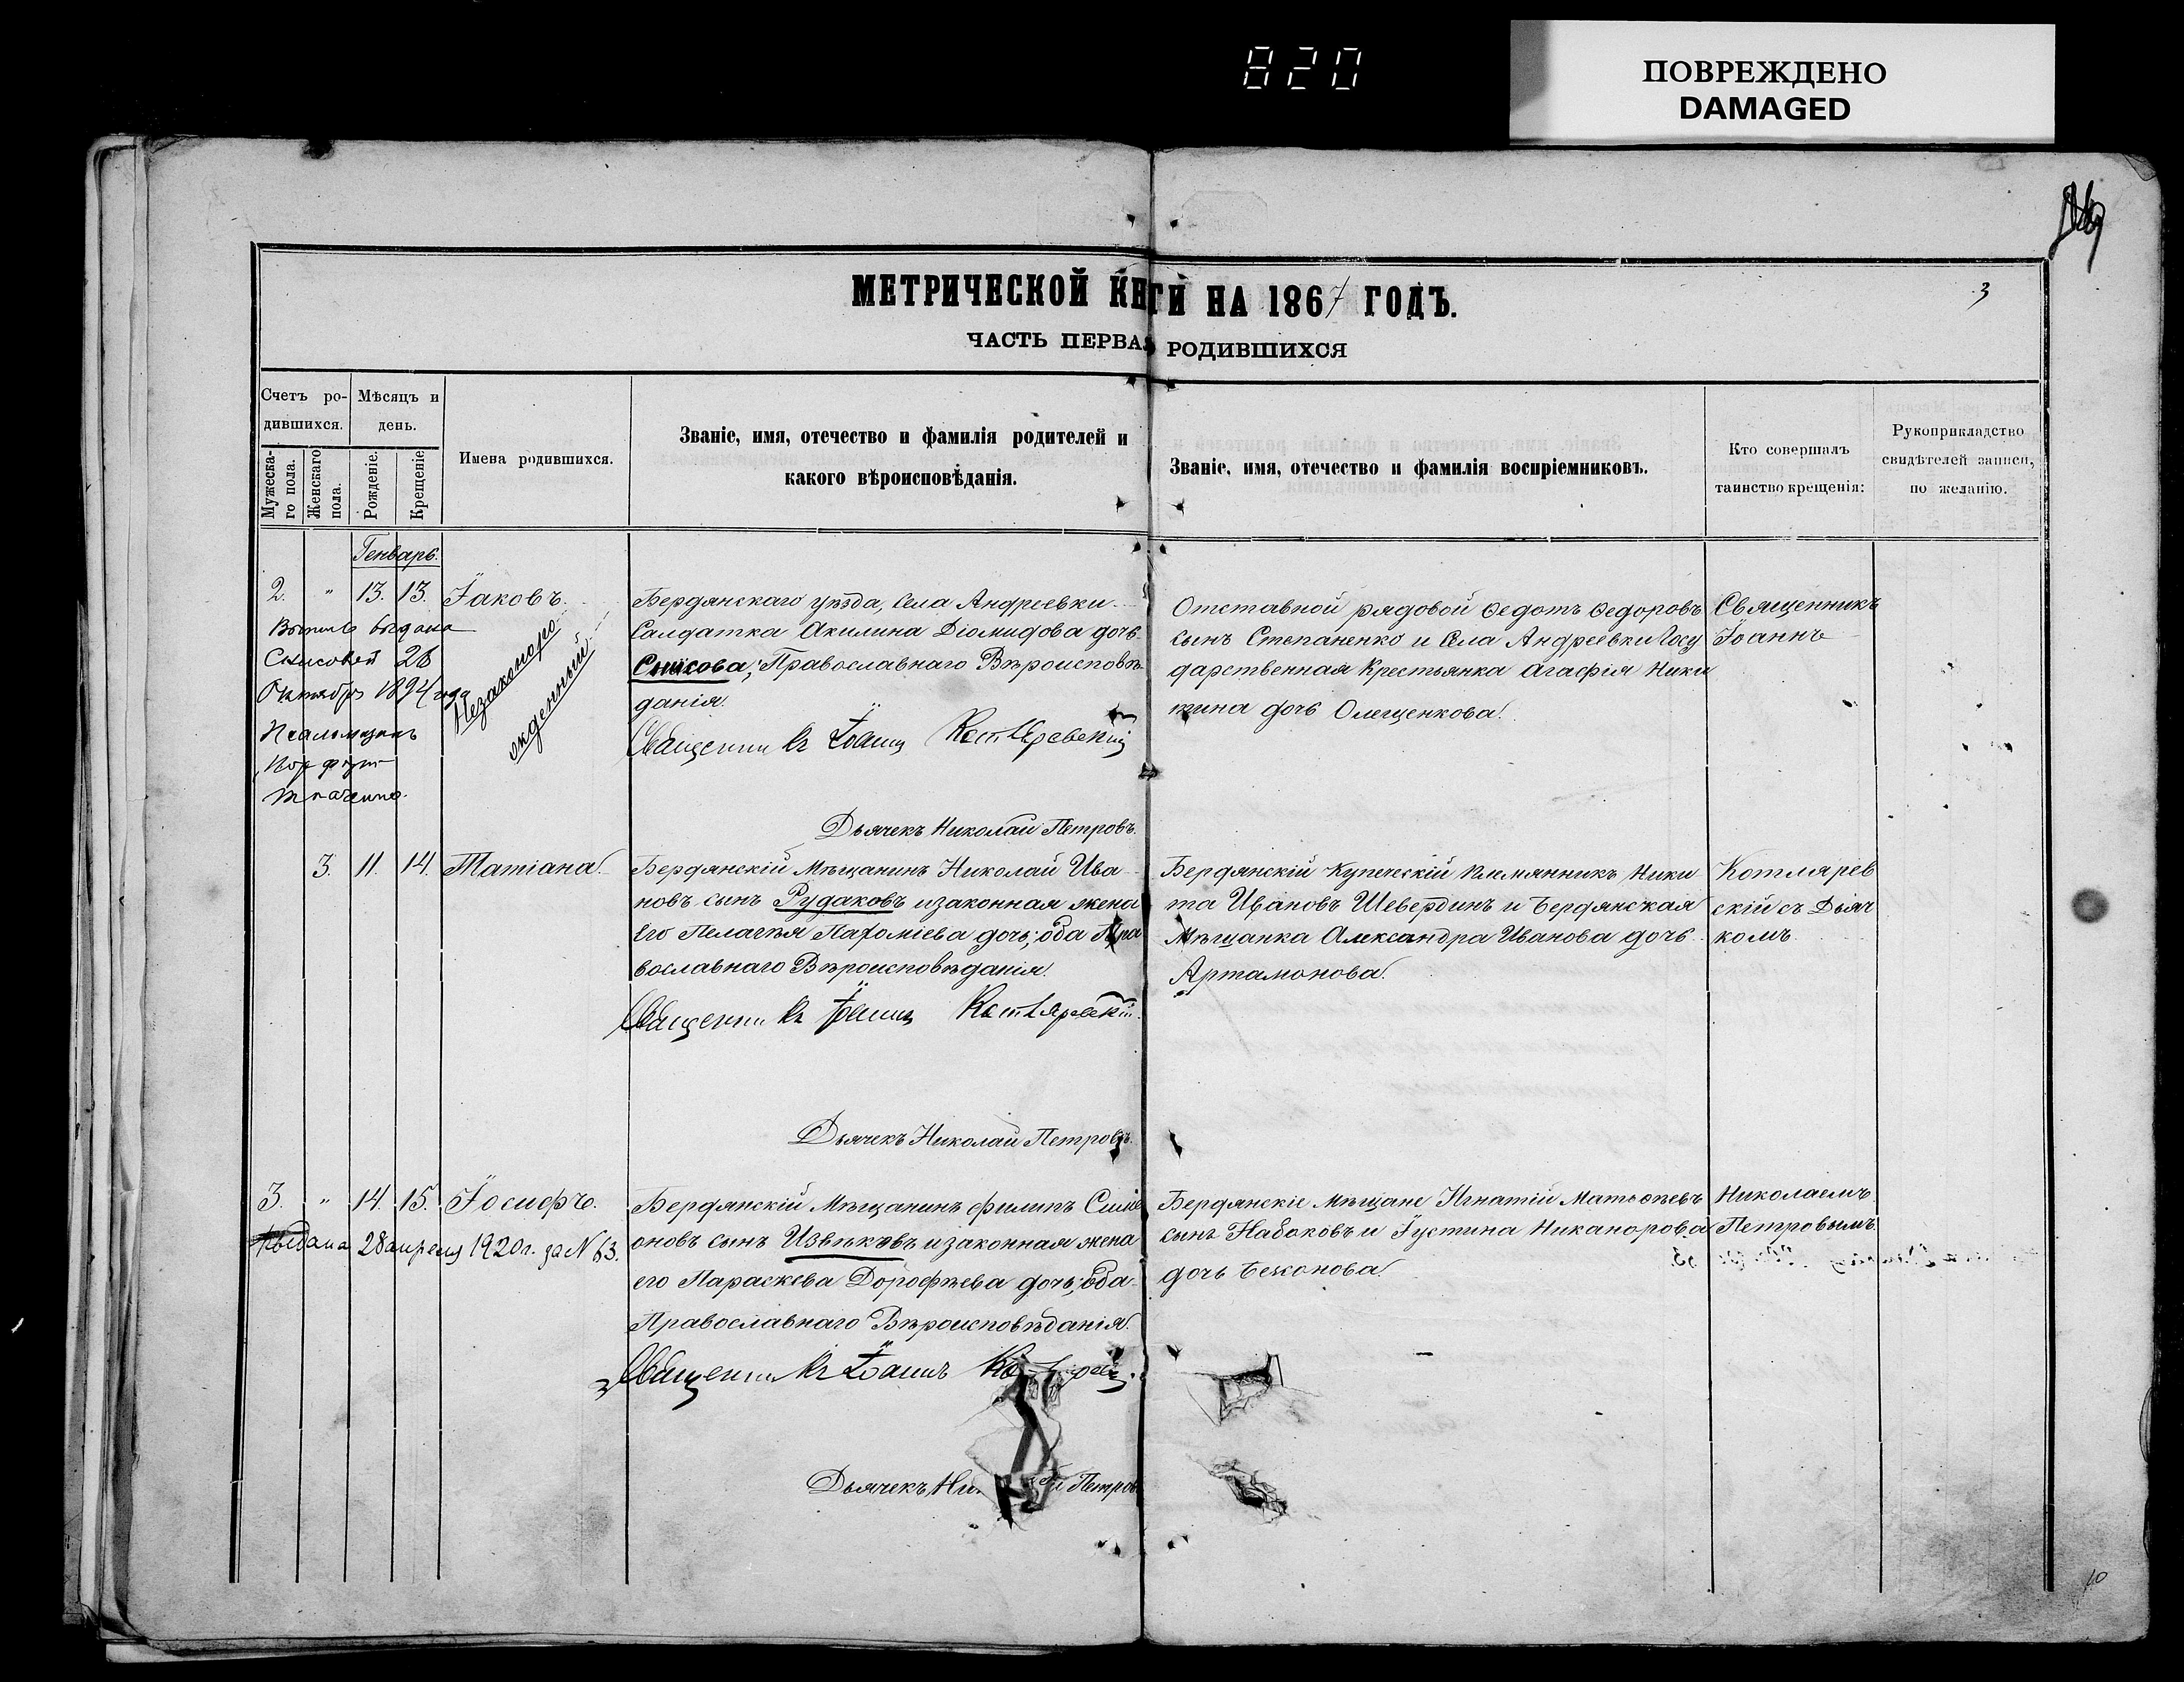 820
ПОВРЕЖДЕНО
DAMAGED
3
МЕТРИЧЕСКОЙ КНИГИ НА 1867 ГОДЪ.
ЧАСТЬ ПЕРВАЯ РОДИВШИХСЯ
Счетъ ро-
дившихся.
Мужеска-
го пола.
Женскаго
пола.
Мѣсяцъ и
день.
Рожденіе.
Крещеніе
Имена родившихся.
Званіе, имя, отечество и фамилія родителей и
какого вѣроисповѣданія.
Званіе, имя, отечество и фамилія воспріемниковъ.
Кто совершалъ
таинство крещенія:
Рукоприкладство
свидѣтелей записи,
по желанію.
Генварь.
2. " 13. 13. Іаковъ.
Незаконоро
жденный.
выдана
28
Октября 1894 года
Псаломщикъ
Ткаченко.
Бердянскаго уѣзда, села Андреевки
Салдатка Акилина Діомидова дочь
Снисова; Православнаго Вѣроисповѣ-
данія.
Священникъ Іоаннъ Котляревскій
Дьячекъ Николай Петровъ.
Отставной рядовой Ѳедотъ Ѳедоровъ
сынъ Степаненко и Села Андреевки Госу
дарственная Крестьянка Агафія Ники
тина дочь Олещенкова.
Священникъ
Іоаннъ
3. 11. 14. Татіана.
Бердянскій Мѣщанинъ Николай Ива
новъ сынъ Рудаковъ и законная жена
Его Пелагѣя Пахоміева дочь; оба Пра
вославнаго Вѣроисповѣданія.
Священникъ Іоаннъ Котляревскій.
Дьячекъ Николай Петровъ.
Бердянскій Купеческій племянникъ Ники
та Ивановъ Шевердинъ и Бердянская
Мѣщанка Александра Иванова дочь
Артамонова.
Котлярев
скій съ Дьяч
комъ
3. " 14. 15. Іосифъ.
Выдана 28 апреля 1920 г. за N 63.
Бердянскій Мѣщанинъ Филипъ Симе
оновъ сынъ Извѣковъ и законная жена
его Параскева Дорофѣева дочь; оба
Православнаго Вѣроисповѣданія.
Священникъ Іоаннъ
Дьячекъ Петров
Бердянскіе мѣщане Игнатій Матѳѣевъ
сынъ Набоковъ и Іустина Никанорова
дочь Безконова.
Николаемъ
Петровымъ
10